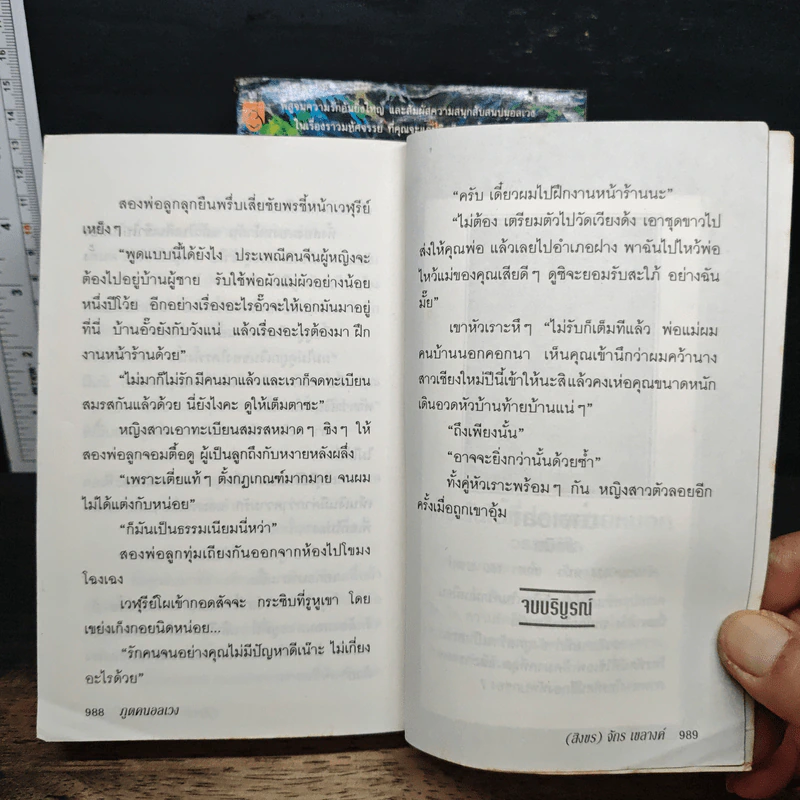 พิสูจน์ความรักอันยิ่งใหญ่ และสัมผัสความสนุกสับสนปนอลเวง
ในเรื่องราวมหัศจรรย์ ที่คุณจะ
สองพ่อลูกลุกยืนพรึ่บเสี่ยชัยพรชี้หน้าเวฬุรีย์
เหย็งๆ
“พูดแบบนี้ได้ยังไง ประเพณีคนจีนผู้หญิงจะ
ต้องไปอยู่บ้านผู้ชาย รับใช้พ่อผัวแม่ผัวอย่างน้อย
หนึ่งปีโว้ย อีกอย่างเรื่องอะไรอั๊วจะให้เอกมันมาอยู่
ที่นี่ บ้านอั๊วยังกับวังแน่ แล้วเรื่องอะไรต้องมา ฝึก
งานหน้าร้านด้วย”
“ไม่มาก็ไม่รัก มีคนมาแล้วและเราก็จดทะเบียน
สมรสกันแล้วด้วย นี่ยังไงคะ ดูให้เต็มตาซะ”
หญิงสาวเอาทะเบียนสมรสหมาดๆ ซิงๆ ให้
สองพ่อลูกจอมตื๊อดู ผู้เป็นลูกถึงกับหงายหลังผลึ่ง
“เพราะเตี่ยแท้ๆ ตั้งกฎเกณฑ์มากมาย จนผม
ไม่ได้แต่งกับหน่อย”
“ก็มันเป็นธรรมเนียมนี่หว่า”
สองพ่อลูกทุ่มเถียงกันออกจากห้องไปโขมง
โฉงเฉง
เวฬุรีย์โผเข้ากอดสัจจะ กระซิบที่รูหูเขา โดย
เขย่งเก็งกอยนิดหน่อย...
“รักคนจนอย่างคุณไม่มีปัญหาดีเน๊าะ ไม่เกี่ยง
อะไรด้วย”
988 ภูตคนอลเวง
“ครับ เดี๋ยวผมไปฝึกงานหน้าร้านนะ”
“ไม่ต้อง เตรียมตัวไปวัดเวียงด้ง เอาชุดขาวไป
ส่งให้คุณพ่อ แล้วเลยไปอำเภอฝาง พาฉันไปไหว้พ่อ
ไหว้แม่ของคุณเสียดีๆ ดูซิจะยอมรับสะใภ้ อย่างฉัน
มั้ย”
เขาหัวเราะหึๆ “ไม่รับก็เต็มทีแล้ว พ่อแม่ผม
คนบ้านนอกคอกนา เห็นคุณเข้านึกว่าผมคว้านาง
สาวเชียงใหม่ปีนี้เข้าให้นะสิแล้วคงเห่อคุณขนาดหนัก
เดินอวดหัวบ้านท้ายบ้านแน่ๆ”
“ถึงเพียงนั้น”
“อาจจะยิ่งกว่านั้นด้วยซ้ำ”
ทั้งคู่หัวเราะพร้อมๆ กัน หญิงสาวตัวลอยอีก
ครั้งเมื่อถูกเขาอุ้ม
จบบริบูรณ์
(สิงขร) จักร เขลางค์ 989